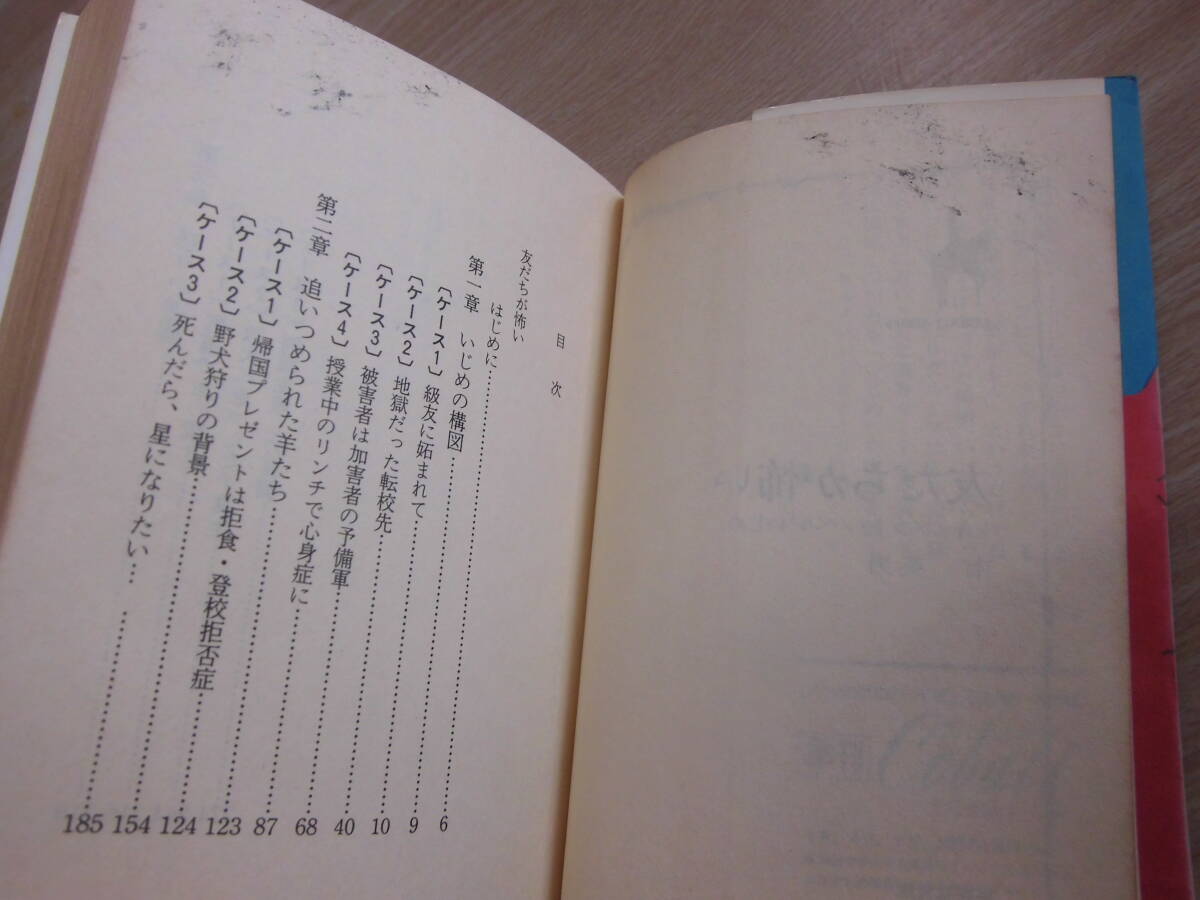 目次
友だちが怖い
はじめに…………6
第一章　いじめの構図…………9
〔ケース1〕級友に妬まれて…………10
〔ケース2〕地獄だった転校先…………40
〔ケース3〕被害者は加害者の予備軍…………68
〔ケース4〕授業中のリンチで心身症に…………87
第二章　追いつめられた羊たち…………123
〔ケース1〕帰国プレゼントは拒食・登校拒否症…………124
〔ケース2〕野犬狩りの背景…………154
〔ケース3〕死んだら、星になりたい…　…………185